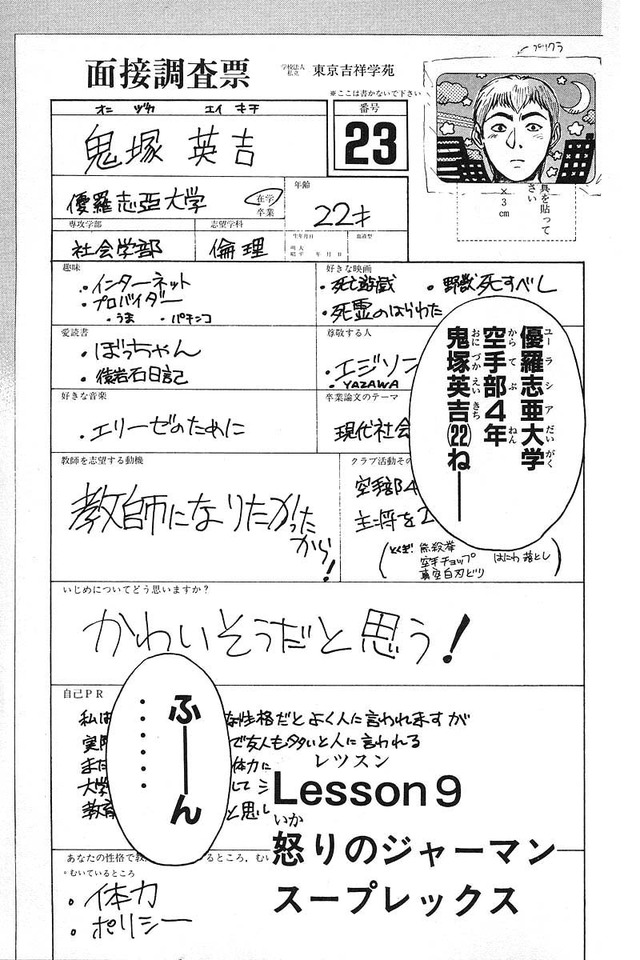 プリクラ
面接調査票
学校法人
私立
東京吉祥学苑
※ここは書かないで下さい
オニ ヅカ エイ キチ
鬼塚 英吉
番号
23
具を貼って
さい
×
3
cm
優羅志亜大学
在学
卒業
年齢
22才
専攻学部
志望学科
生年月日
社会学部
倫理
年 月 日
趣味
・インターネット
・プロバイダー
・うま ・パチンコ
好きな映画
・死亡遊戯 ・野獣死すべし
・死霊のはらわた
愛読書
・ぼっちゃん
・猿岩石日記
尊敬する人
・エジソン
・YAZAWA
好きな音楽
・エリーゼのために
卒業論文のテーマ
現代社会
優羅志亜大学
ユーラシアだいがく
空手部4年
からてぶ ねん
鬼塚英吉(22)ねー
おにづかえいきち
教師を志望する動機
教師になりたかった
から!
クラブ活動その
空手部4
主将を2
とくぎ
無殺拳
空手チョップ
真空白刃どり
はにわ落とし
いじめについてどう思いますか?
かわいそうだと思う!
自己PR
私は
な性格だとよく人に言われますが
実際
で友人も多いと人に言われる
また
体力に
大学
して
教育
と思い
ふーん
・・・・・・
レツスン
Lesson 9
いか
怒りのジャーマン
スープレックス
あなたの性格で教
いるところ、むい
・むいているところ
・体力
・ポリシー